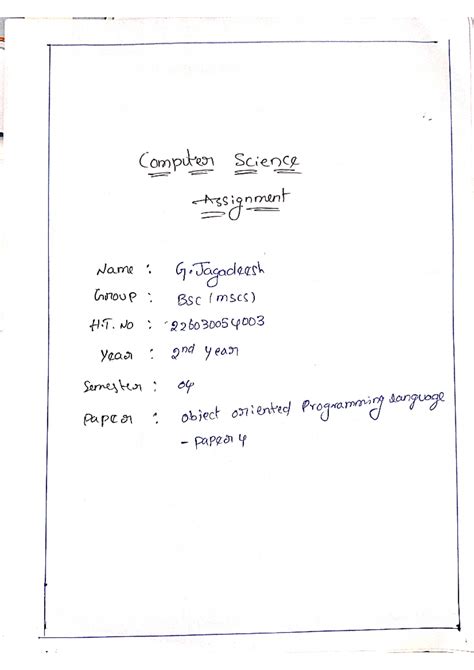 Computer Science
Assignment
Name : G. Jagadeesh
Group : BSC (MSCS)
H.T. No : 226030054003
Year : 2nd year
Semester : 04
Paper : object oriented Programming language
- paper 4